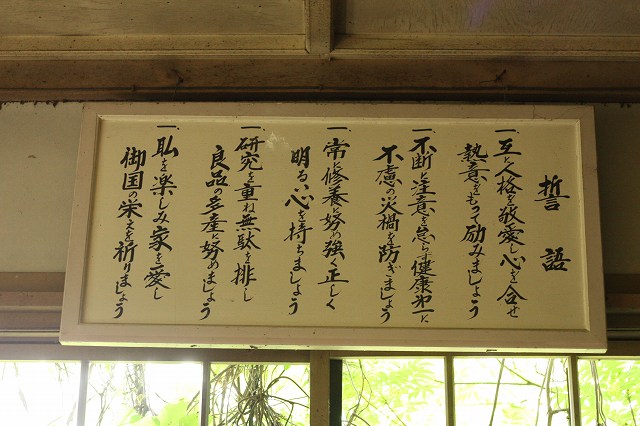 誓語
一、互に人格を敬愛し心を合せ
熱意をもって励みましょう
一、不断に注意を怠らず健康第一に
不慮の災禍を防ぎましょう
一、常に修養に努め強く正しく
明るい心を持ちましょう
一、研究を重ね無駄を排し
良品の多産に努めましょう
一、職を楽しみ家を愛し
御国の栄えを祈りましょう